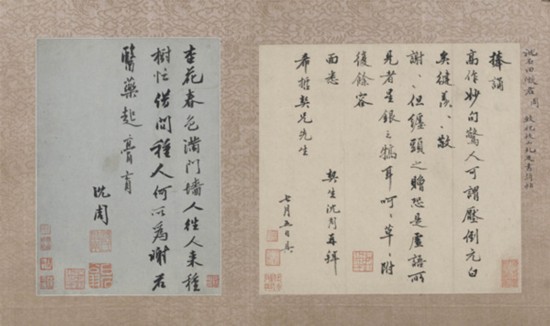 沈石田徵君 周
捧誦
高作妙句驚人可謂壓倒元白
矣健羨〻敬
謝〻但纏頭之贈恐是虛語所
見者星銀之犒耳呵〻草〻附
後餘容
面悉
契生沈周再拜
希哲契兄先生
七月五日具
杏花春色滿門墻人往人來種
樹忙借問種人何以為謝君
醫藥起膏肓
沈周